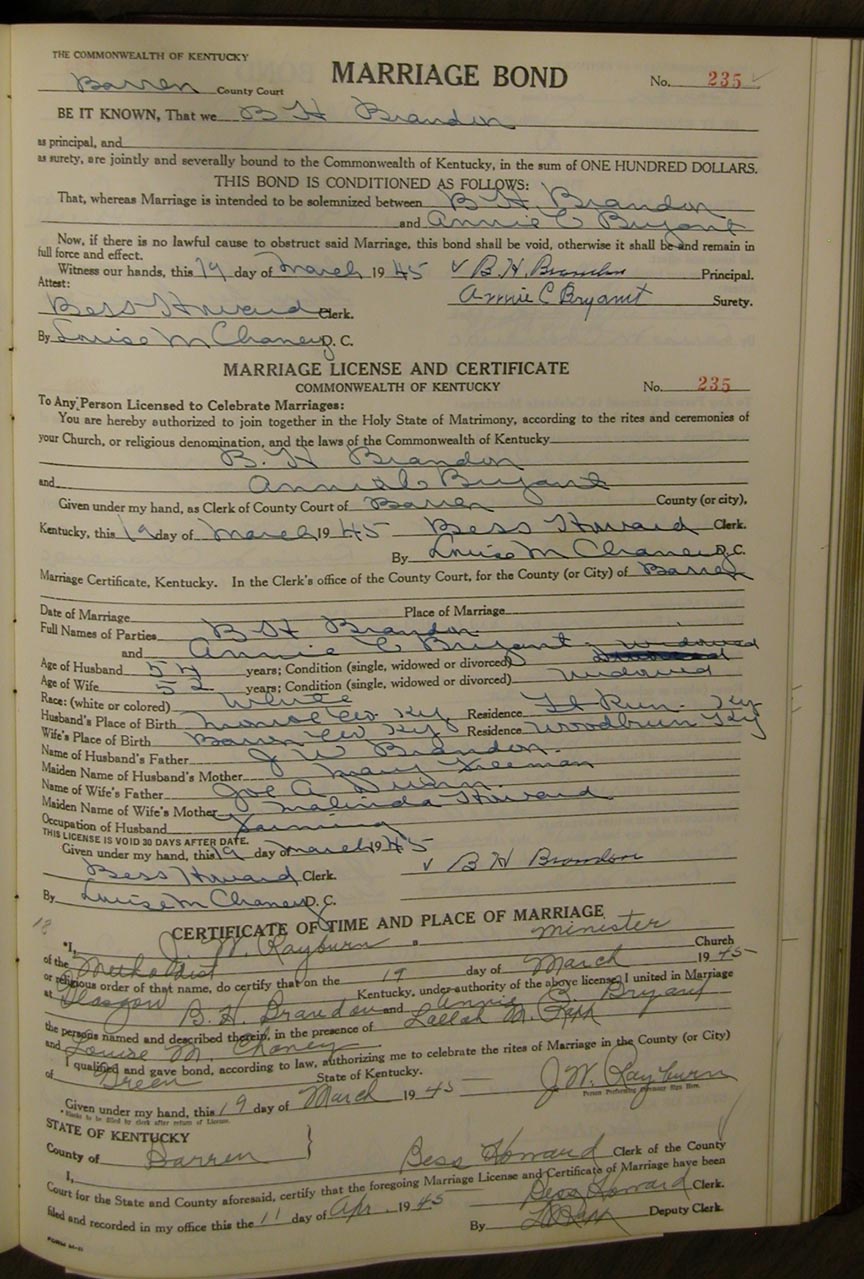 THE COMMONWEALTH OF KENTUCKY
Barren County Court MARRIAGE BOND No. 235
BE IT KNOWN, That we B H Brandon
as principal, and
as surety, are jointly and severally bound to the Commonwealth of Kentucky, in the sum of ONE HUNDRED DOLLARS.
THIS BOND IS CONDITIONED AS FOLLOWS:
That, whereas Marriage is intended to be solemnized between B. H. Brandon
and Annie C Bryant
Now, if there is no lawful cause to obstruct said Marriage, this bond shall be void, otherwise it shall be and remain in
full force and effect.
Witness our hands, this 19 day of March 1945 B. H. Brandon Principal.
Attest:
Bess Howard Clerk. Annie C Bryant Surety.
By Louise M Chaney D. C.
MARRIAGE LICENSE AND CERTIFICATE
COMMONWEALTH OF KENTUCKY No. 235
To Any Person Licensed to Celebrate Marriages:
You are hereby authorized to join together in the Holy State of Matrimony, according to the rites and ceremonies of
your Church, or religious denomination, and the laws of the Commonwealth of Kentucky
B. H Brandon
and Annie C Bryant
Given under my hand, as Clerk of County Court of Barren County (or city),
Kentucky, this 19 day of March 1945 Bess Howard Clerk.
By Louise M Chaney D. C.
Marriage Certificate, Kentucky. In the Clerk's office of the County Court, for the County (or City) of Barren
Date of Marriage Place of Marriage
Full Names of Parties B H Brandon
and Annie C Bryant widowed
Age of Husband 54 years; Condition (single, widowed or divorced)
Age of Wife 52 years; Condition (single, widowed or divorced) widowed
Race: (white or colored) White
Husband's Place of Birth Monroe Co. Ky Residence Ft Run. Ky
Wife's Place of Birth Barren Co Ky Residence Woodburn Ky
Name of Husband's Father J W Brandon.
Maiden Name of Husband's Mother Mary Freeman
Name of Wife's Father Joe A
Maiden Name of Wife's Mother Malinda Howard
Occupation of Husband Farming
THIS LICENSE IS VOID 30 DAYS AFTER DATE.
Given under my hand, this 19 day of March 1945
Bess Howard Clerk. B H Brandon
By Louise M Chaney D. C.
CERTIFICATE OF TIME AND PLACE OF MARRIAGE
*I, J. W. Rayburn a minister
of the Methodist Church
or religious order of that name, do certify that on the 19 day of March 1945
at Glasgow Kentucky, under authority of the above license, I united in Marriage
B. H. Brandon and Annie C. Bryant
the persons named and described therein, in the presence of Lallah M. Rapp
and Louise M. Chaney.
I qualified and gave bond, according to law, authorizing me to celebrate the rites of Marriage in the County (or City)
of Green State of Kentucky.
Given under my hand, this 19 day of March 1945 J. W. Rayburn
* Blanks to be filled by clerk after return of License. Person Performing Ceremony Sign Here.
STATE OF KENTUCKY
County of Barren
I, Bess Howard Clerk of the County
Court for the State and County aforesaid, certify that the foregoing Marriage License and Certificate of Marriage have been
filed and recorded in my office this the 11 day of Apr. 1945 Bess Howard Clerk.
By LMRapp Deputy Clerk.